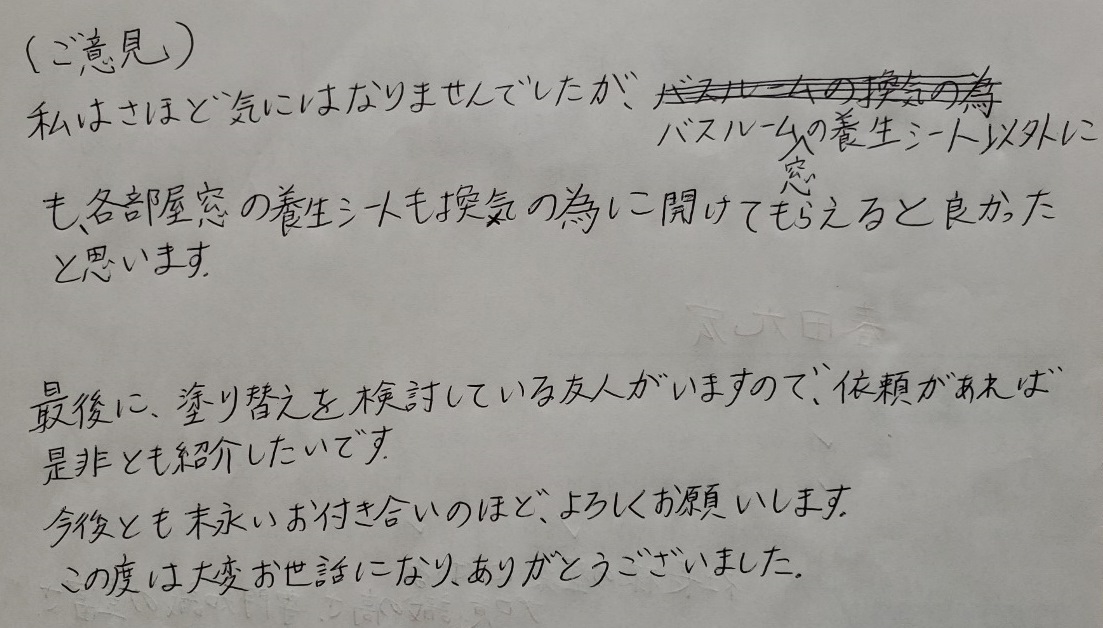 (ご意見)
私はさほど気にはなりませんでしたが、バスルームの換気の為
バスルーム窓の養生シート以外に
も、各部屋窓の養生シートも換気の為に開けてもらえると良かった
と思います。
最後に、塗り替えを検討している友人がいますので、依頼があれば
是非とも紹介したいです。
今後とも末永いお付き合いのほど、よろしくお願いします。
この度は大変お世話になり、ありがとうございました。